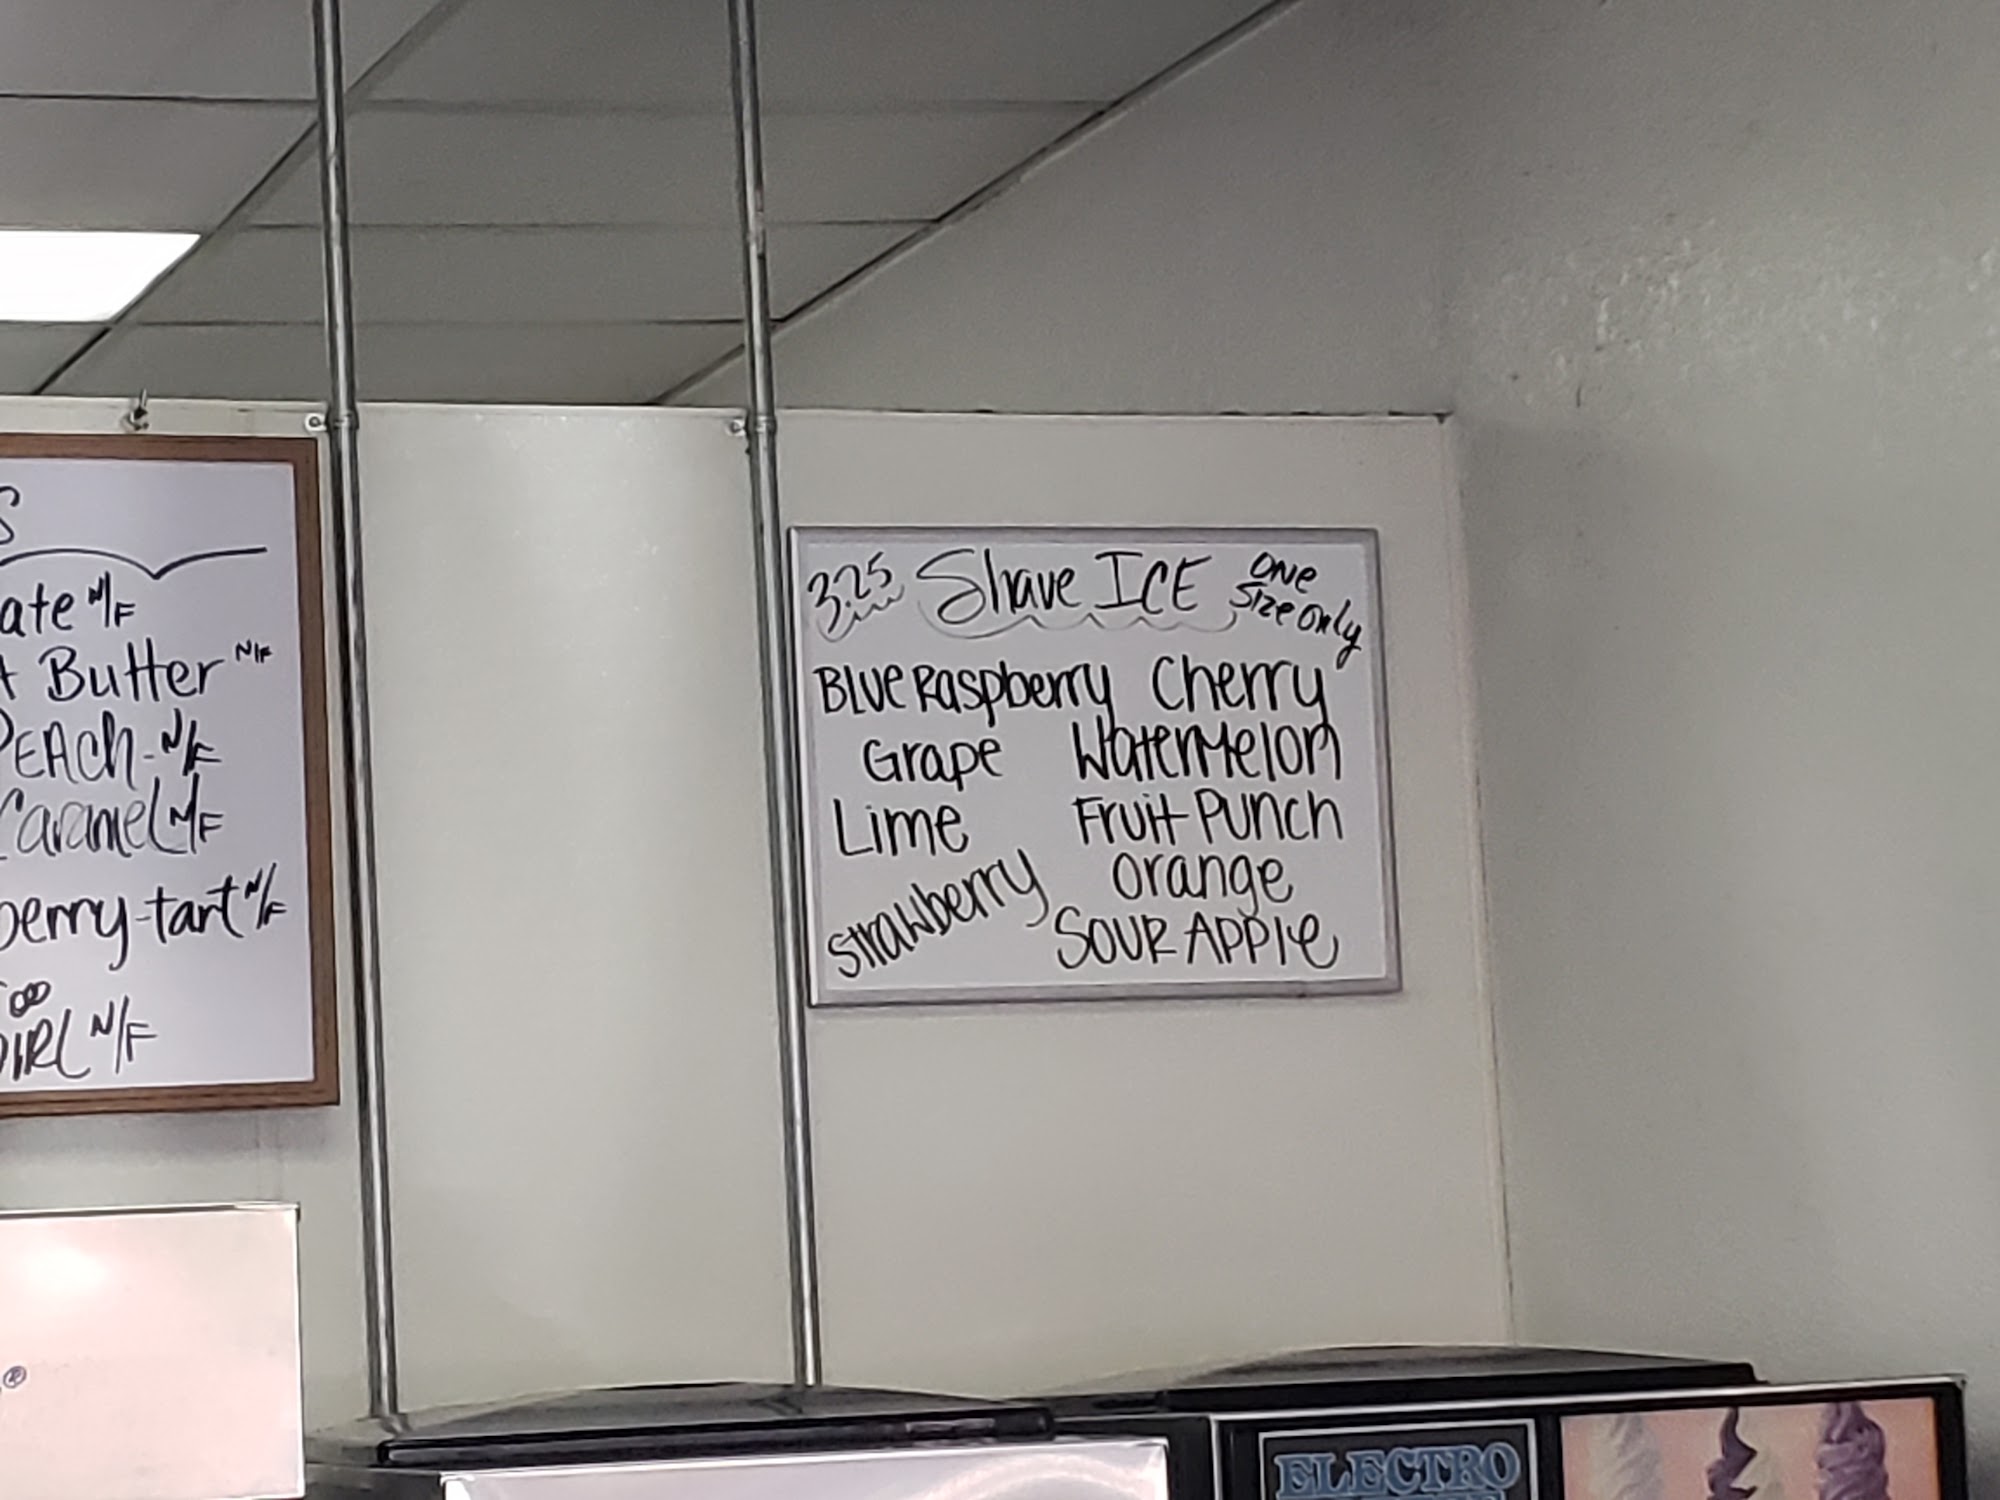 S
ate N/F
t Butter N/F
PEACh-N/F
Caramel N/F
berry-tart N/F
N/F
3.25 Shave ICE ONe
Size only
BLUe Raspberry Cherry
Grape WaterMelon
Lime Fruit Punch
Strawberry Orange
SOUR APPle
®
ELECTRO